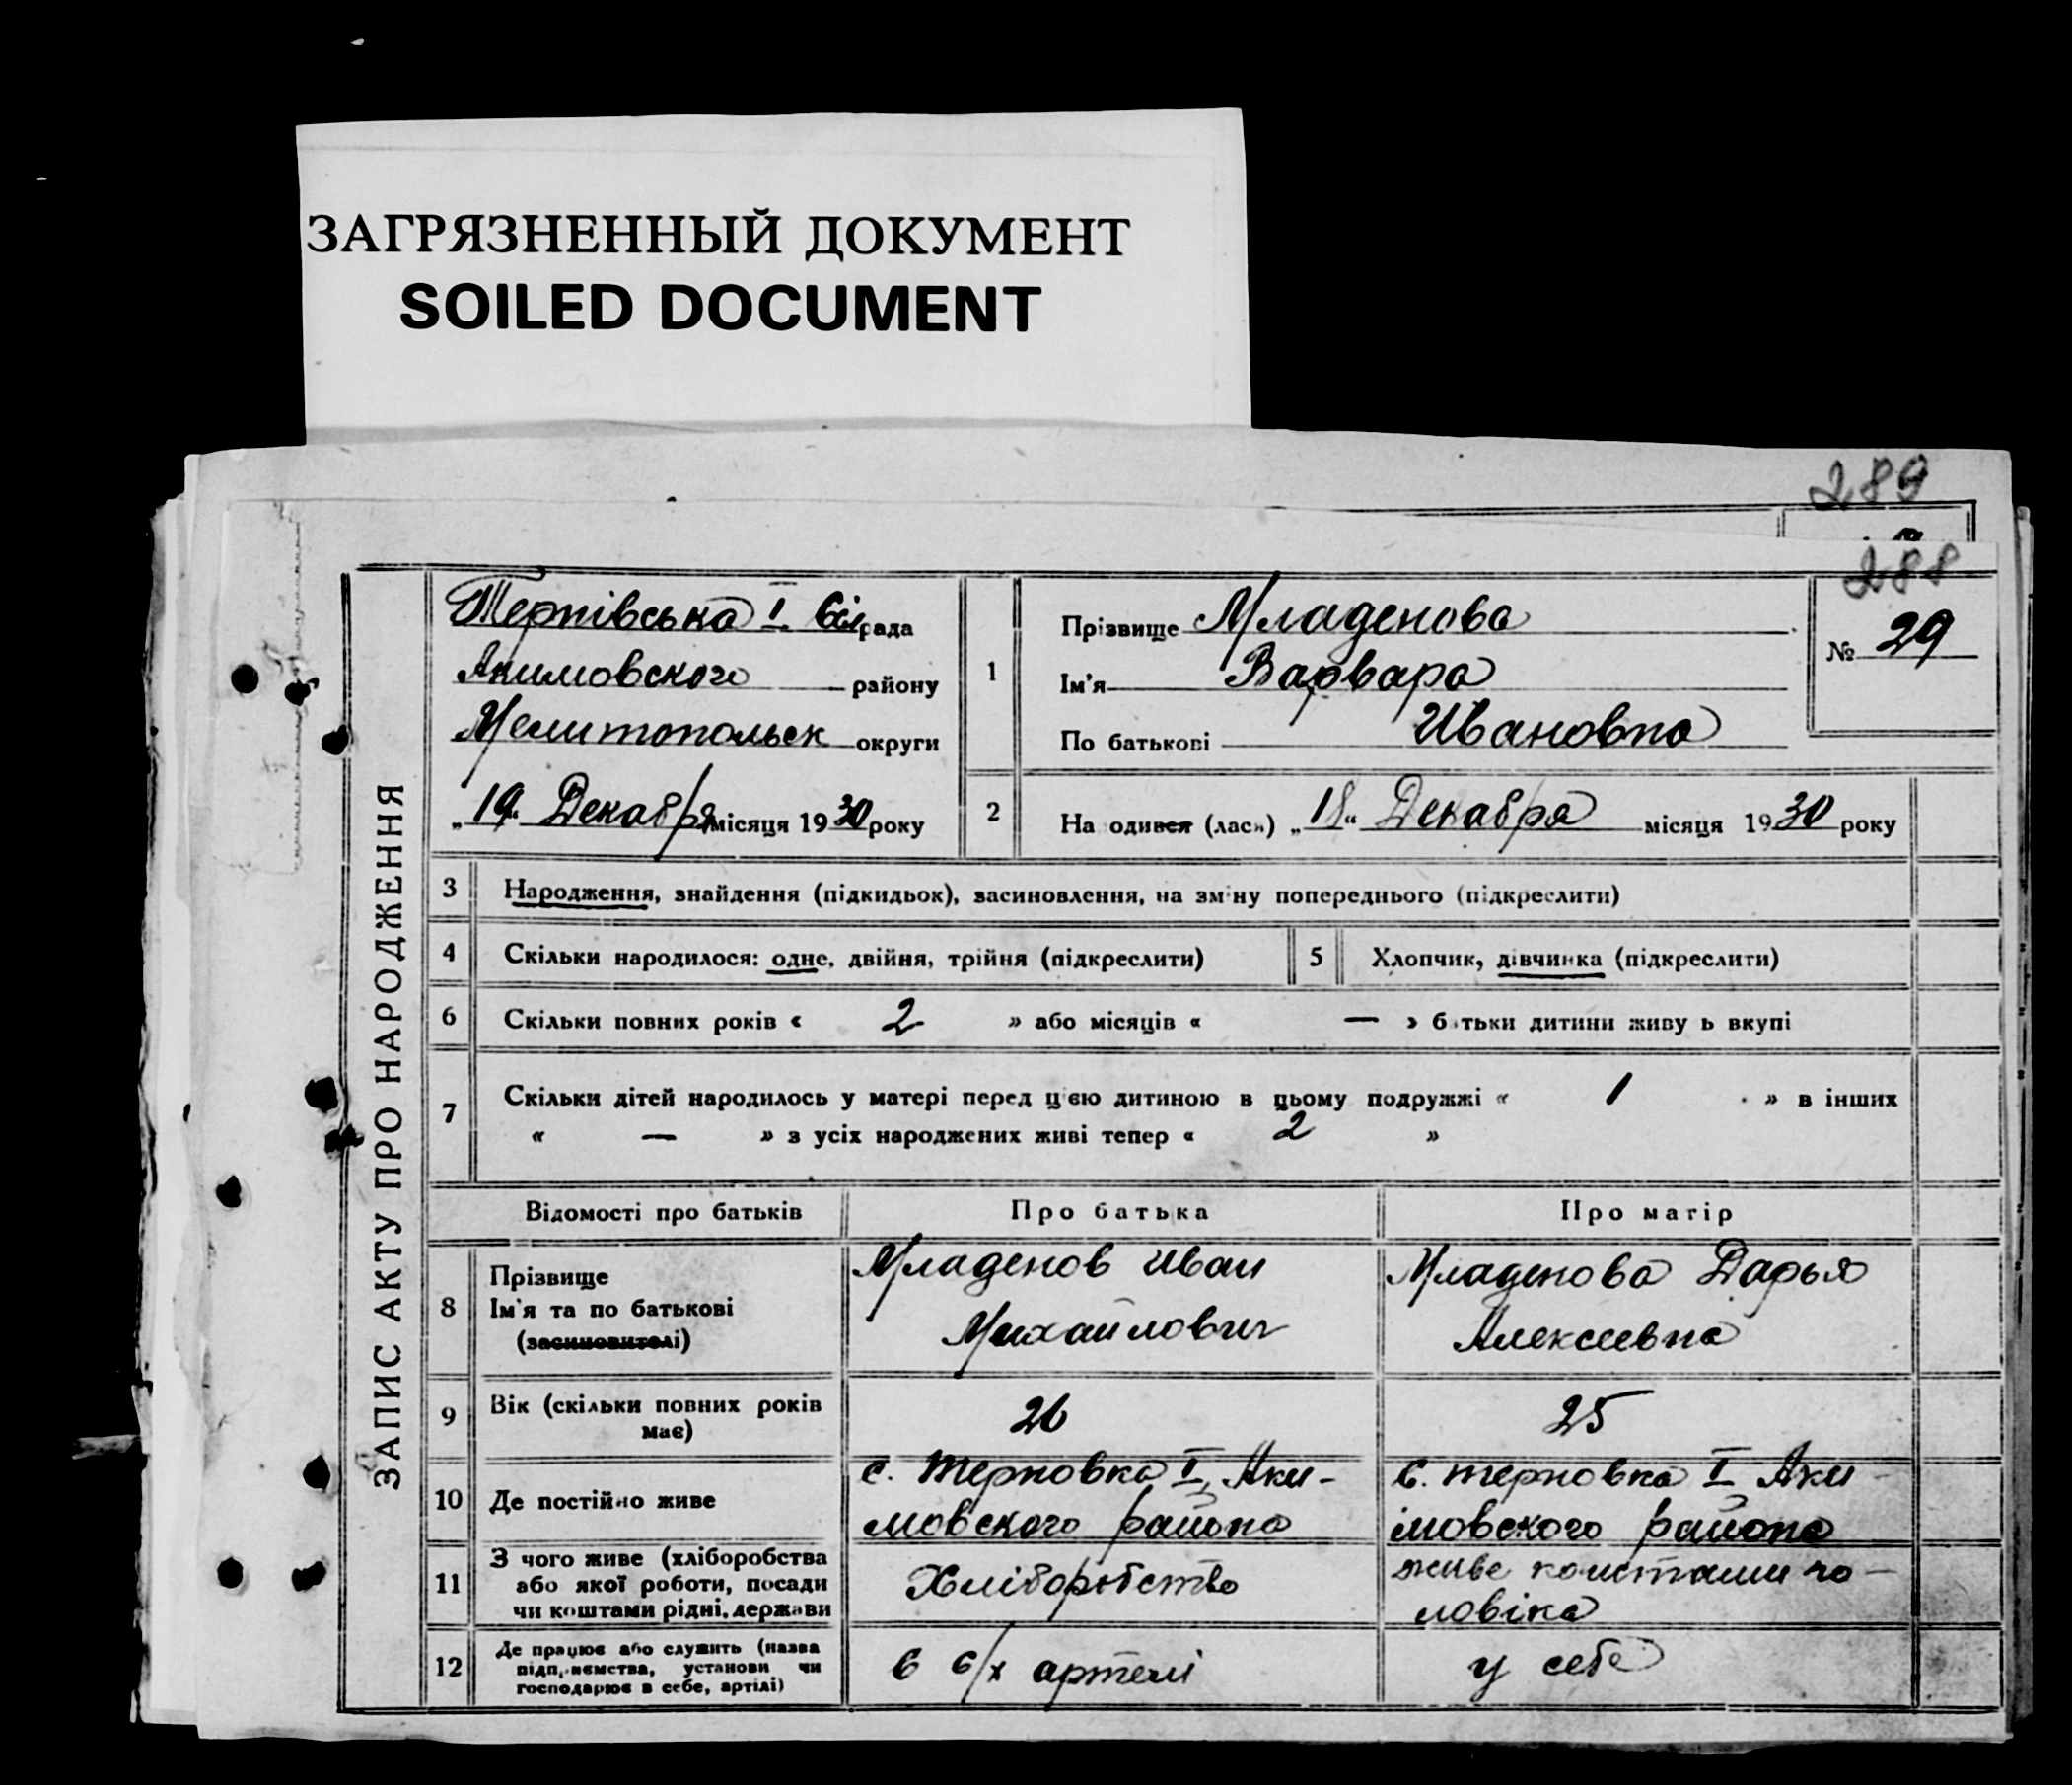 ЗАГРЯЗНЕННЫЙ ДОКУМЕНТ
SOILED DOCUMENT
289
288
ЗАПИС АКТУ ПРО НАРОДЖЕННЯ
Тернівська I сільрада
Акимовского району
Мелитопольск округи
„19“ Декабря місяця 1930 року
1
Прізвище Младенова
Ім'я Варвара
По батькові Ивановна
№ 29
2
На одився (лася) „18“ Декабря місяця 1930 року
3 Народження, знайдення (підкидьок), засиновлення, на зміну попереднього (підкреслити)
4 Скільки народилося: одне, двійня, трійня (підкреслити) 5 Хлопчик, дівчинка (підкреслити)
6 Скільки повних років « 2 » або місяців « — » батьки дитини живуть вкупі
7 Скільки дітей народилось у матері перед цією дитиною в цьому подружжі « 1 » в інших
« — » з усіх народжених живі тепер « 2 »
Відомості про батьків Про батька Про матір
8 Прізвище
Ім'я та по батькові
(засиновителі)
Младенов Иван
Михайлович
Младенова Дарья
Алексеевна
9 Вік (скільки повних років
має)
26
25
10 Де постійно живе
с. Терновка I, Аки-
мовского района
с. Терновка I Аки-
мовского района
11 З чого живе (хліборобства
або якої роботи, посади
чи коштами рідні, держави
Хліборобство
живе коштами чо-
ловіка
12 Де працює або служить (назва
підприємства, установи чи
господарює в себе, артілі)
в с/х артелі
у себе